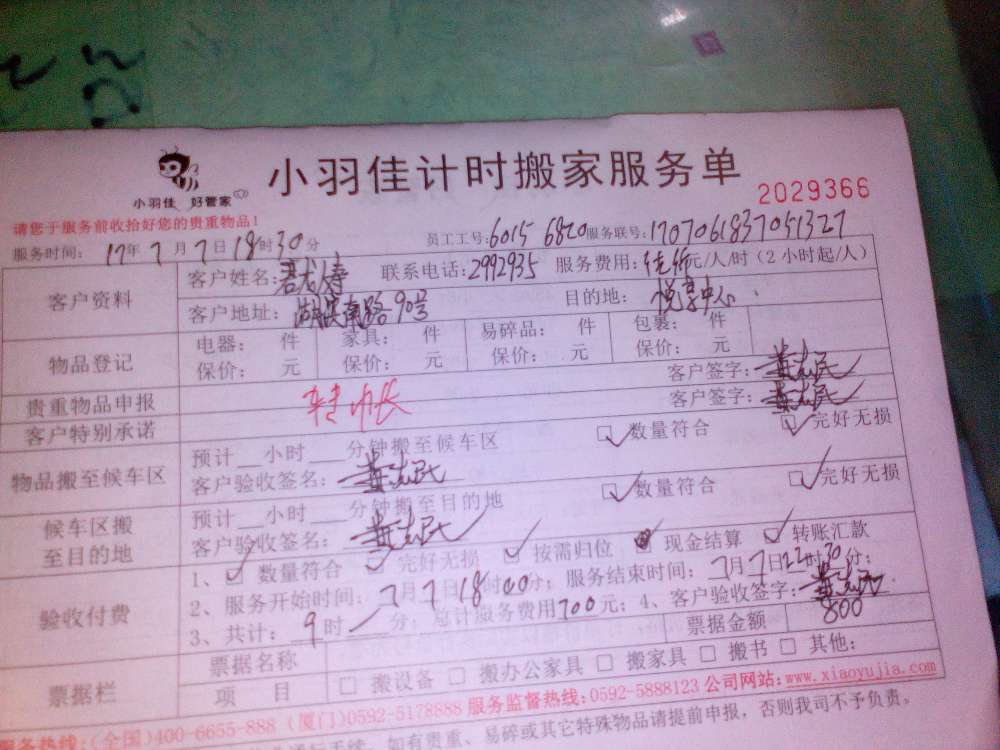 小羽佳 好管家
小羽佳计时搬家服务单
2029366
请您于服务前收拾好您的贵重物品!
服务时间: 17年7月7日18时30分 员工工号:6015 6820 服务联号:1707061837051327
客户资料 客户姓名: 联系电话:2992935 服务费用: 元/人/时(2小时起/人)
客户地址: 湖滨南路90号 目的地: 悦享中心
物品登记 电器: 件 家具: 件 易碎品: 件 包裹: 件
保价: 元 保价: 元 保价: 元 保价: 元
贵重物品申报 客户签字: 黄志民
客户特别承诺 客户签字: 黄志民
物品搬至候车区 预计__小时___分钟搬至候车区 数量符合 完好无损
客户验收签名: 黄志民
候车区搬至目的地 预计__小时___分钟搬至目的地 数量符合 完好无损
客户验收签名: 黄志民
验收付费 1、 数量符合 完好无损 按需归位 现金结算 转账汇款
2、服务开始时间: 7月7日18时00分; 服务结束时间: 7月7日22时30分;
3、共计: 9时 分; 总计服务费用700元; 4、客户验收签字: 黄志民
票据栏 票据名称 票据金额 800
项 目 □ 搬设备 □ 搬办公家具 □ 搬家具 □ 搬书 □ 其他:
服务热线:(全国)400-6655-888 (厦门)0592-5178888 服务监督热线:0592-5888123 公司网站:www.xiaoyujia.com
如有贵重、易碎或其它特殊物品请提前申报,否则我司不予负责。